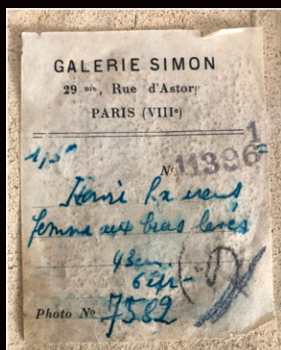 GALERIE SIMON
29 bis, Rue d'Astorg
PARIS (VIIIe)
No 11396
Henri Laurens
femme aux bras levés
43 cm
Photo No 7582